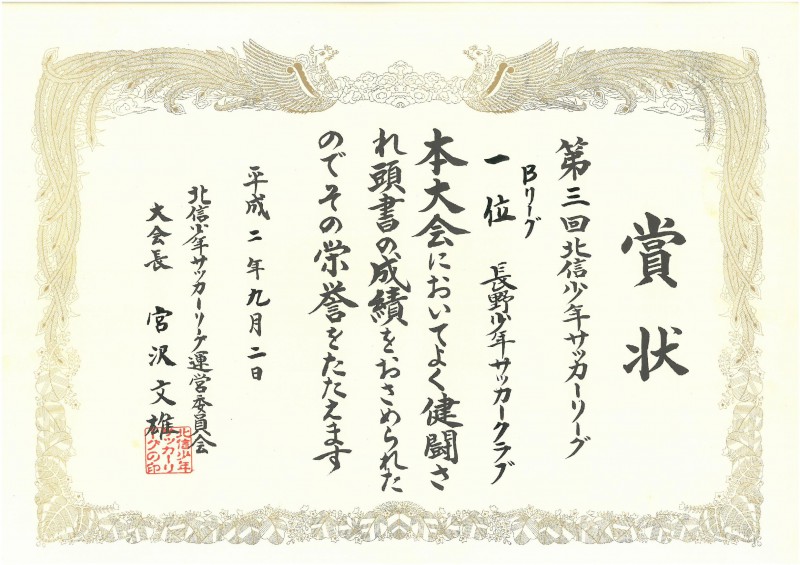 賞状
第三回北信少年サッカーリーグ
Bリーグ
一位 長野少年サッカークラブ
本大会においてよく健闘さ
れ頭書の成績をおさめられた
のでその栄誉をたたえます
平成二年九月二日
北信少年サッカーリーグ運営委員会
大会長 宮沢文雄
北信少年
サッカーリ
ーグの印